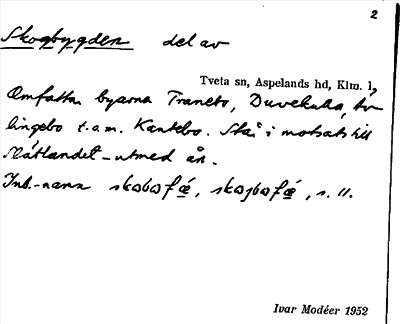 2
Skogbygden del av
Tveta sn, Aspelands hd, Klm. l,
Omfattar byarna Traneto, Duvekulla, Äv
lingebo t.o.m. Kantebo. Står i motsats till
Slättlandet - utmed ån.
Inb.-namn skobofæ, skogbofæ, s. 11.
Ivar Modéer 1952